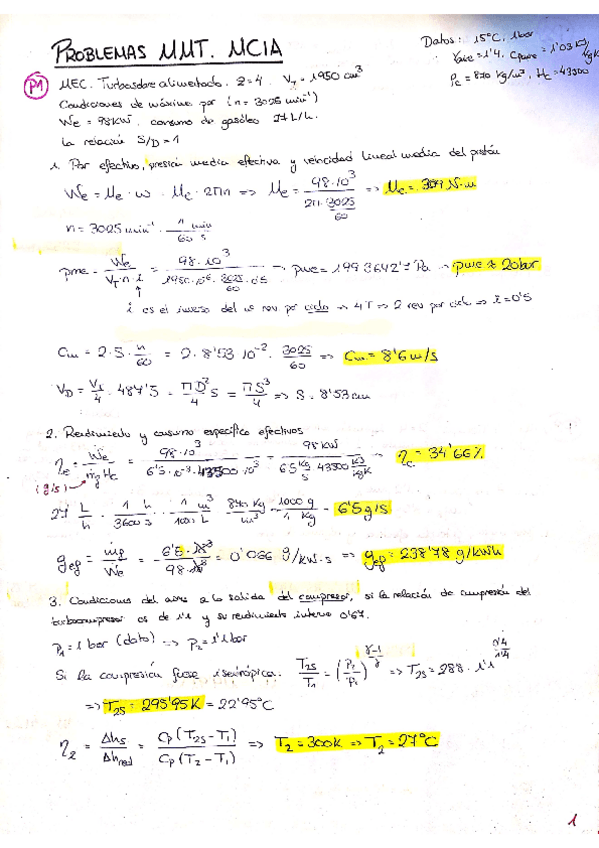 PROBLEMAS MMT. MCIA
Datos: 15°C, 1bar
γaire = 1'4, Cpaire = 1'03 KJ/KgK
ρc = 870 Kg/m³, Hc = 43500
P1 MEC. Turbosobrealimentado. z=4. VT = 1950 cm³
Condiciones de máxima por (n = 3025 min⁻¹)
Ẇe = 98KW. consumo de gasóleo 27 L/h.
la relación S/D = 1
1. Par efectivo, presión media efectiva y velocidad lineal media del pistón
Ẇe = Me · ω = Me · 2πn => Me = 98·10³ / (2π · 3025/60) => Me = 309 N·m
n = 3025 min⁻¹ · 1 min / 60 s
pme = Ẇe / (VT·n·i) = 98·10³ / (1950·10⁻⁶ · 3025/60 · 0'5) → pme = 1993642'7 Pa → pme ≈ 20bar
i es el inverso del nº rev por ciclo => 4T => 2 rev por ciclo => i = 0'5
Cm = 2·S· n/60 = 2 · 8'53 · 10⁻² · 3025/60 => Cm = 8'6 m/s
VD = VT/4 = 487'5 = πD²/4 S = πS³/4 => S = 8'53 cm
2. Rendimiento y consumo específico efectivos
ηe = Ẇe / (ṁf Hc) = 98·10³ / (6'5·10⁻³ · 43500·10³) = 98KW / (6'5 Kg/s · 43500 KJ/KgK) → ηe = 34'66%
(g/s)
27 L/h · 1 h / 3600 s · 1 m³ / 1000 L · 870 Kg/m³ · 1000 g / 1 Kg = 6'5 g/s
gef = ṁf / Ẇe = 6'5·10³ / 98·10³ = 0'066 g/KW·s => gef = 238'78 g/KWh
3. Condiciones del aire a la salida del compresor, si la relación de compresión del
turbocompresor es de 1'1 y su rendimiento interno 0'67.
P1 = 1 bar (dato) => P2 = 1'1 bar
Si la compresión fuese isentrópica. T2S/T1 = (P2/P1)^(γ-1/γ) => T2S = 288 · 1'1^(0'4/1'4)
=> T2S = 295'95 K = 22'95°C
η = Δhs / Δhred = Cp (T2S - T1) / Cp (T2 - T1) => T2 = 300K => T2 = 27°C
1